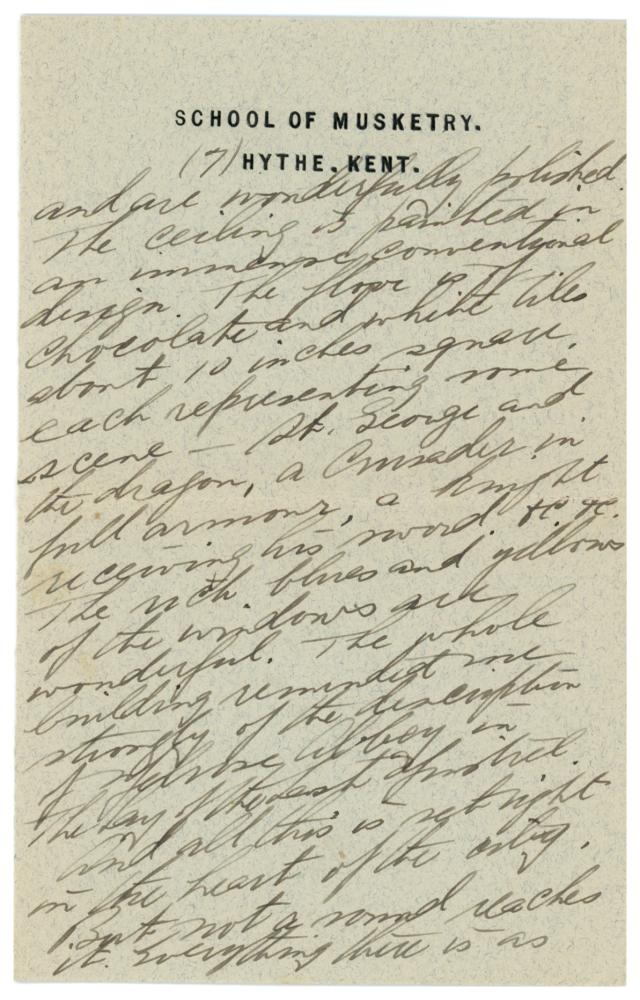 SCHOOL OF MUSKETRY.
(7) HYTHE, KENT.
and are wonderfully polished.
The ceiling is painted in
an immense conventional
design. The floor is of
chocolate and white tiles
about 10 inches square,
each representing some
scene — St. George and
the dragon, a Crusader in
full armour, a knight
receiving his sword &c &c.
The rich blues and yellows
of the windows are
wonderful. The whole
building reminded me
strongly of the description
of Melrose Abbey in
The Lay of the Last Minstrel.
And all this is set right
in the heart of the city,
But not a sound reaches
it. Everything there is as